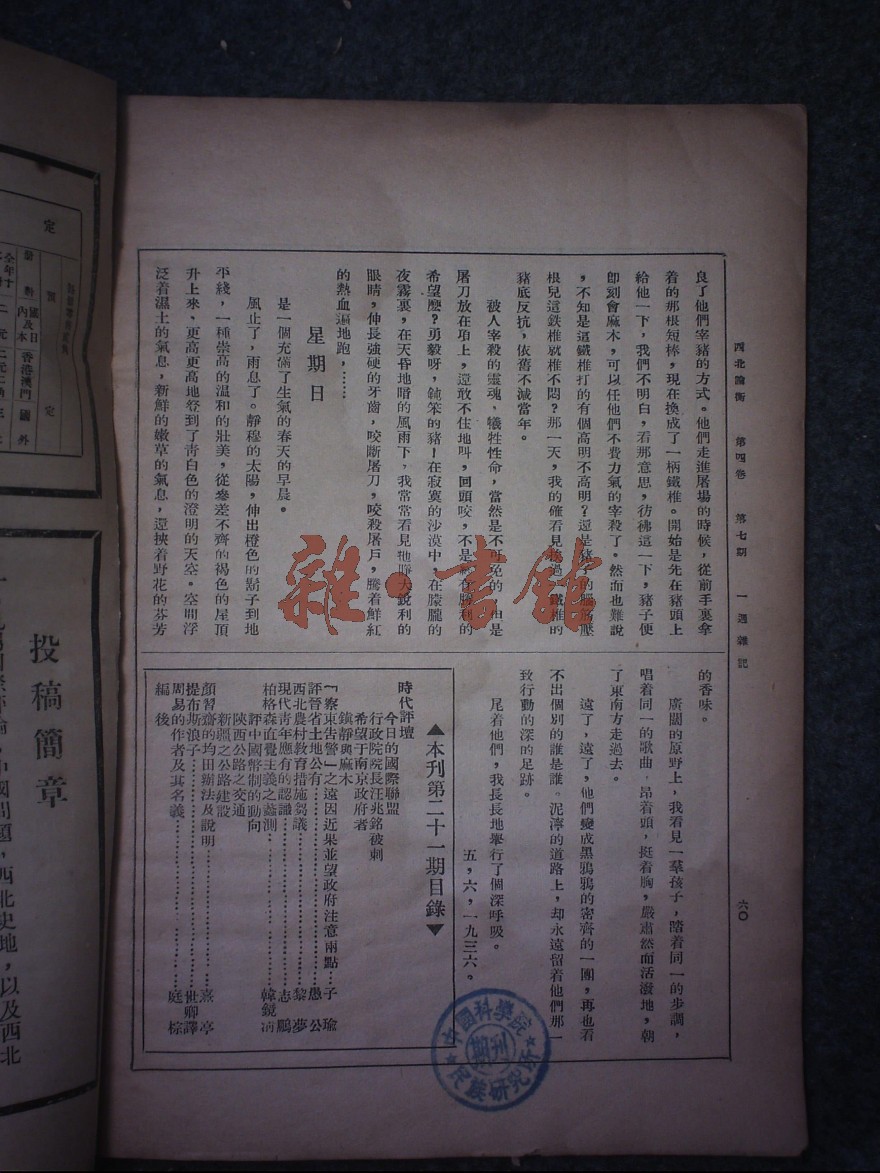 西北論衡　第四卷　第七期　一週雜記
六〇
良了他們宰豬的方式。他們走進屠場的時候，從前手裏拿
着的那根短棒，現在換成了一柄鐵椎。開始是先在豬頭上
給他一下，我們不明白，看那意思，彷彿這一下，豬子便
即刻會麻木，可以任他們不費力氣的宰殺了。然而也難說
，不知是這鐵椎打的有個高明不高明？還是豬子的腦
根兒這鉄椎就椎不悶？那一天，我的確看見 鐵椎的
豬底反抗，依舊不減當年。
被人宰殺的靈魂，犧牲性命，當然是不可免的，但是
屠刀放在項上，還敢不住地叫，回頭咬，不是 勝利的
希望麽？勇毅呀，鈍笨的豬！在寂寞的沙漠中，在朦朧的
夜霧裏，在天昏地暗的風雨下，我常常看見牠睜大銳利的
眼睛，伸長強硬的牙齒，咬斷屠刀，咬殺屠戶，騰着鮮紅
的熱血遍地跑，……
星期日
是一個充滿了生氣的春天的早晨。
風止了，雨息了。靜穆的太陽，伸出橙色的鬍子到地
平綫，一種崇高的溫和的壯美，從參差不齊的褐色的屋頂
升上來，更高更高地昇到了靑白色的澄明的天空。空間浮
泛着濕土的氣息，新鮮的嫩草的氣息，還挾着野花的芬芳
的香味。
廣闊的原野上，我看見一羣孩子，踏着同一的步調，
唱着同一的歌曲，昂着頭，挺着胸，嚴肅然而活潑地，朝
了東南方走過去。
遠了，遠了，他們變成黑鴉鴉的密齊的一團，再也看
不出個別的誰是誰。泥濘的道路上，却永遠留着他們那一
致行動的深的足跡。
尾着他們，我長長地舉行了個深呼吸。
五，六，一九三六。
▲本刊第二十一期目錄▼
時代評壇
今日的國際聯盟
行政院院長汪兆銘被刺
希望于南京政府者
鎮靜與麻木
「察東告警」之遠因近果並望政府注意兩點…子瑜
評晉省土地公有……愚公
西北農村教育措施芻議……黎夢
現代靑年應有的認識……志鵬
柏格森直覺主義之蠡測……韓鏡淸
評中國幣制的動向
陝西公路之交通
新疆之公路建設
顏習齋的均田辦法及說明……熹亭
提布斯浪子……世卿譯
周易的作者及其名義……庭棕
編後
投稿簡章
中國問題，西北史地，以及西北
定
國內及日本
香港澳門
國外
全年
雜·書館
中國科學院
期刊
民族研究所